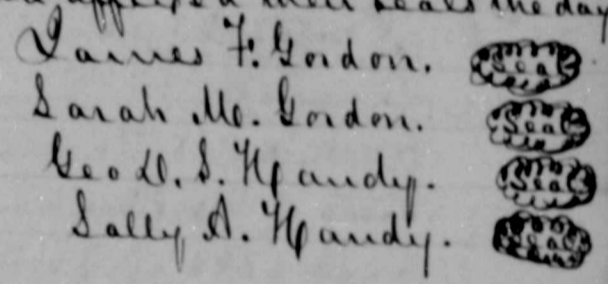 affixed their seals the day
James F. Gordon. Seal
Sarah M. Gordon. Seal
Geo D. S. Handy. Seal
Sally A. Handy. Seal